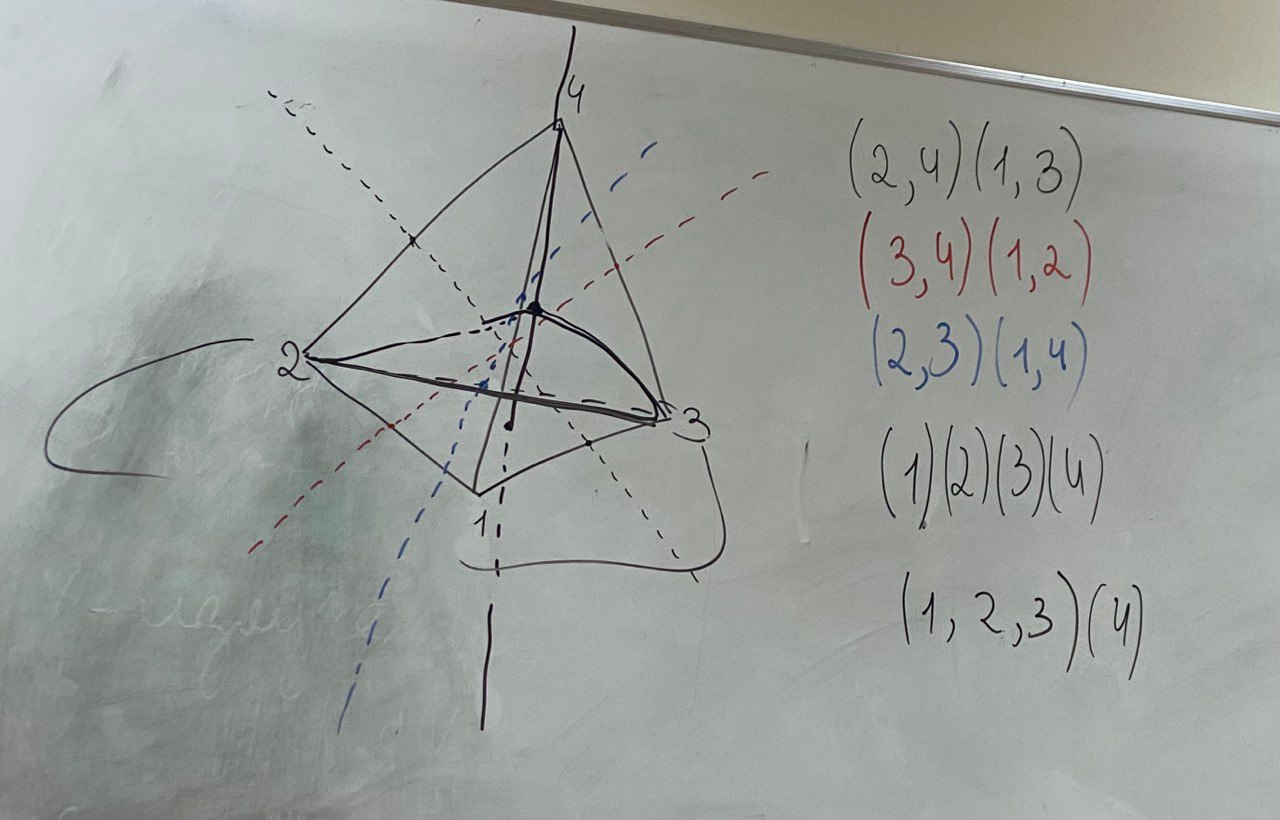 4
2
3
1
(2,4)(1,3)
(3,4)(1,2)
(2,3)(1,4)
(1)(2)(3)(4)
(1,2,3)(4)